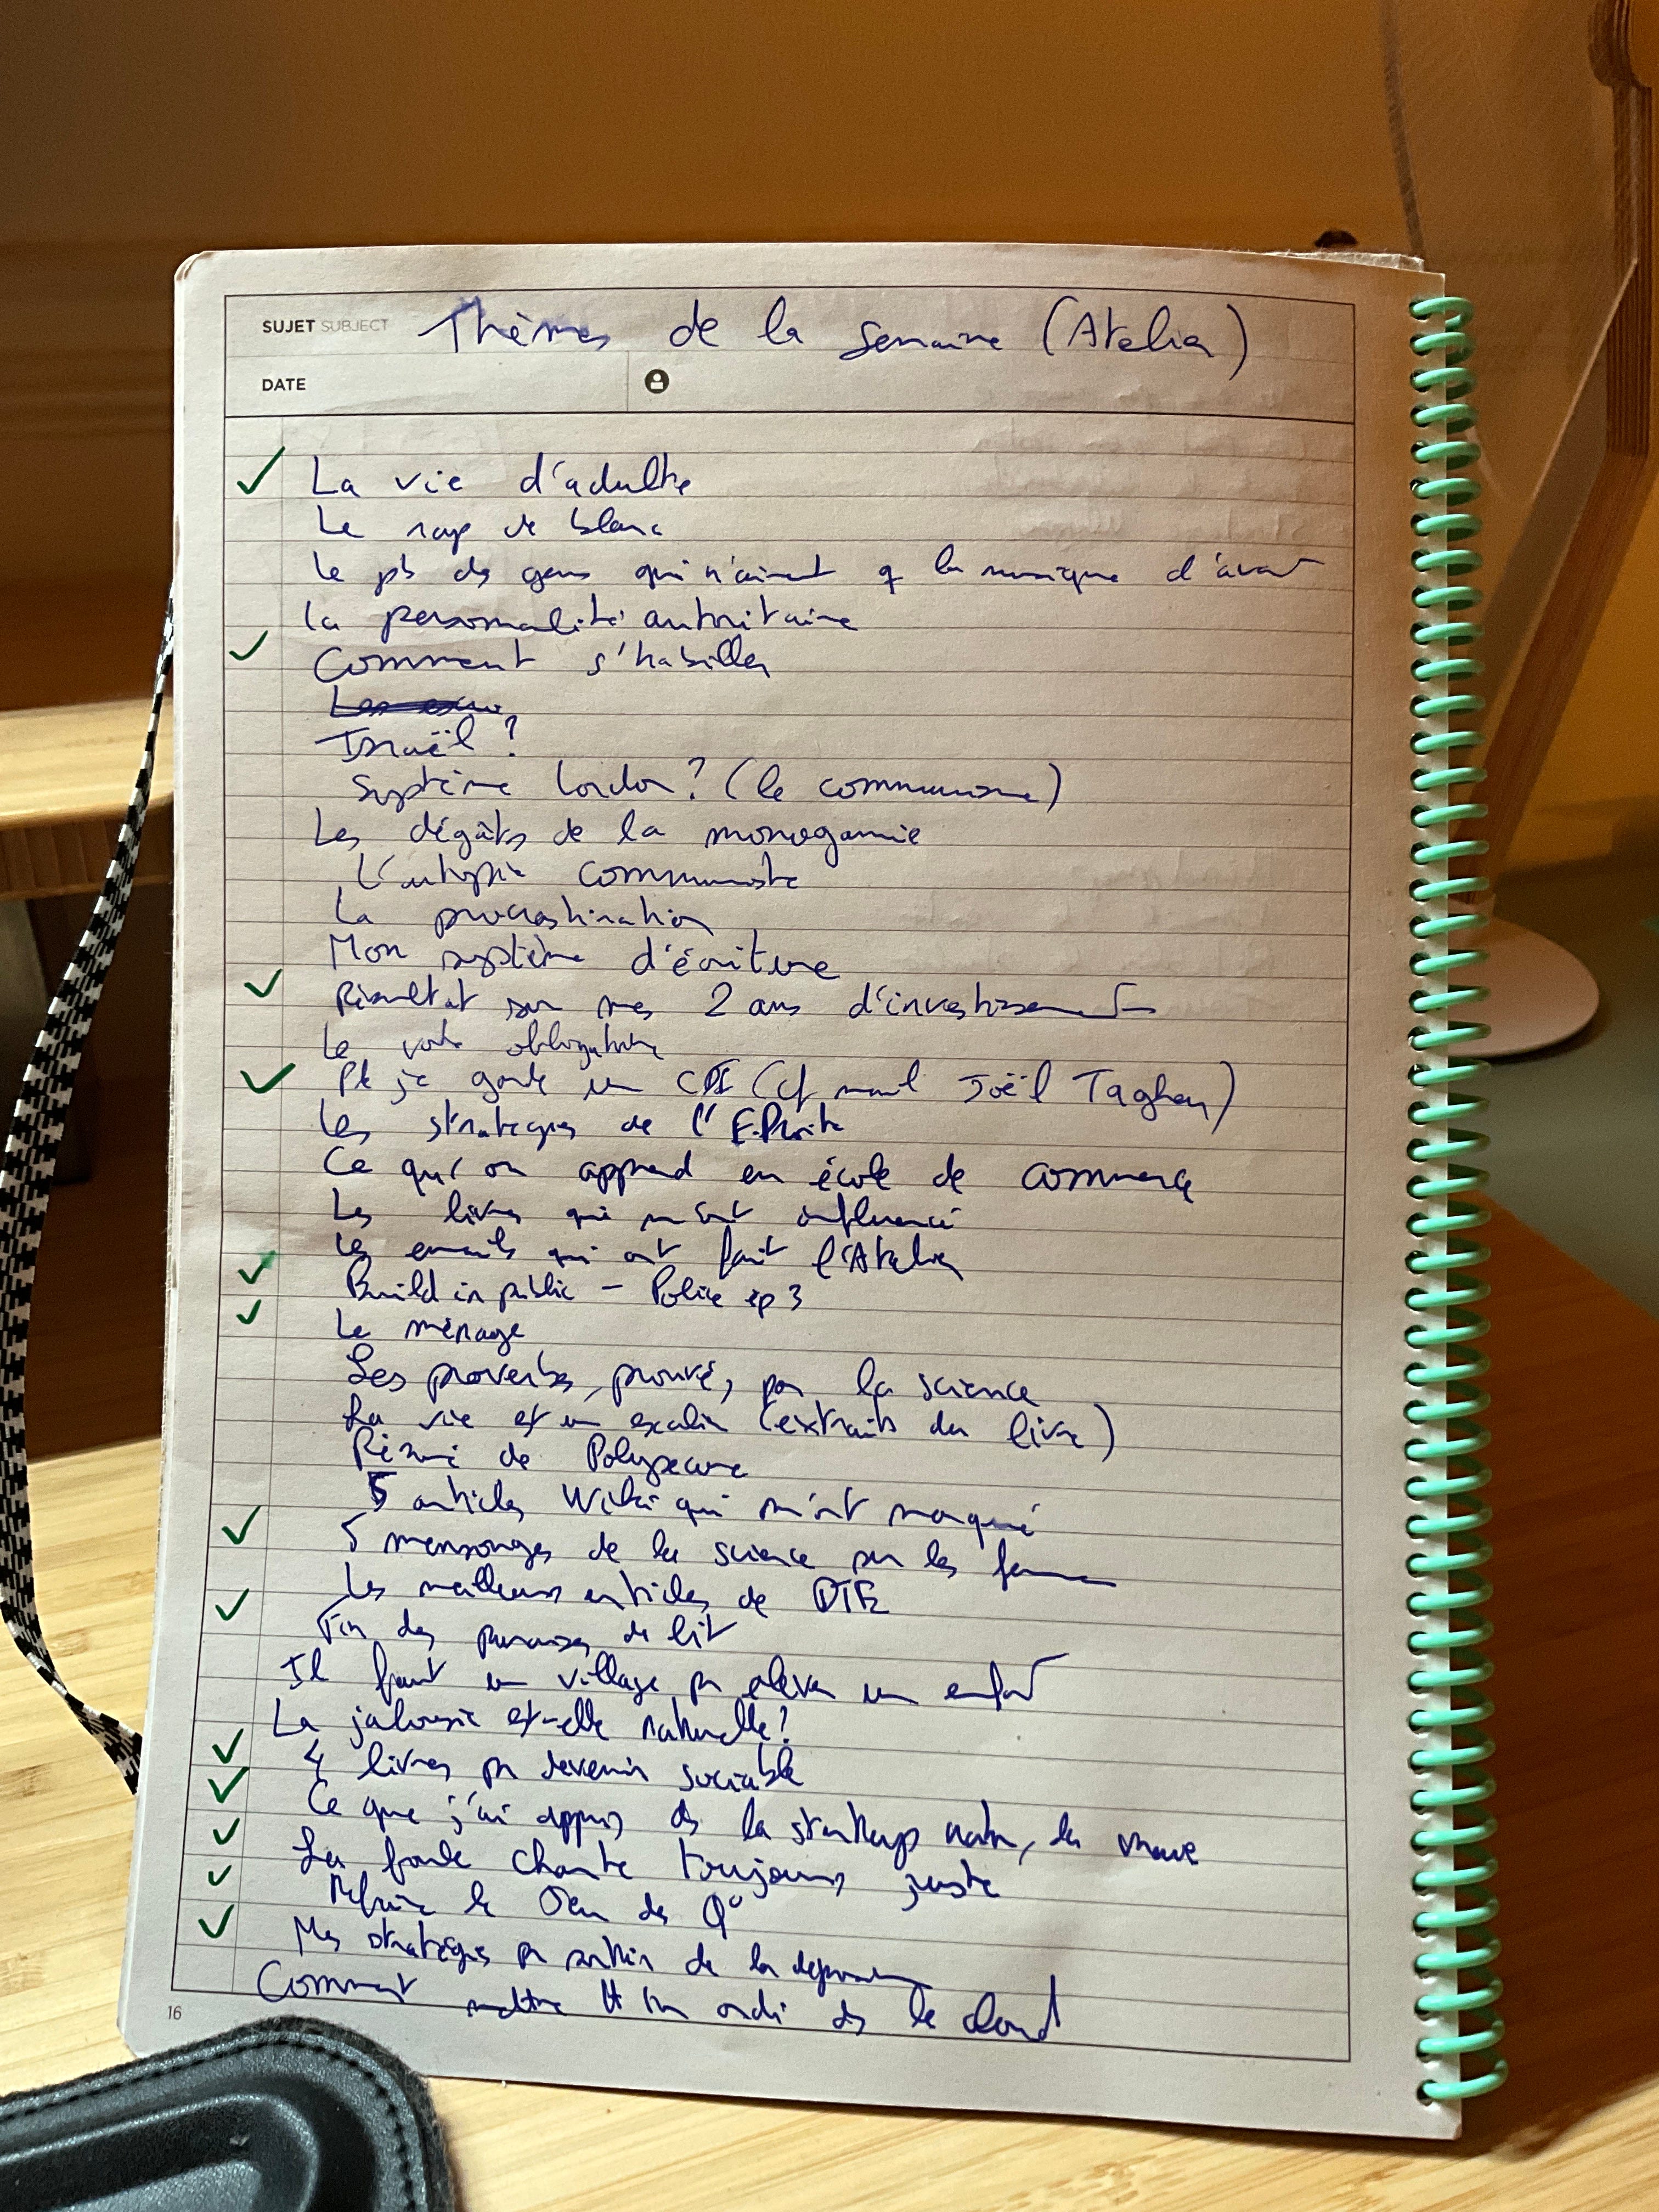 SUJET SUBJECT Thèmes de la semaine (Atelier)
DATE
La vie d'adulte
Le rap de blanc
Le pb des gens qui n'aiment q la musique d'avant
la personnalité autoritaire
Comment s'habiller
Les
Israël ?
Système Lordon ? (le communisme)
Les dégâts de la monogamie
L'utopie communiste
La procrastination
Mon système d'écriture
Résultat sur mes 2 ans d'investissement
Le vote obligatoire
Pk je garde un CDI (cf mail Joël Taghen)
Les stratégies de l'E.Droite
Ce qu'on apprend en école de commerce
Les livres qui m'ont influencé
Les emails qui ont fait l'Atelier
Build in public - Police ep 3
Le ménage
Les proverbes prouvés par la science
La vie est un escalier (extraits du livre)
Résumé de Polysecure
5 articles Wiki qui m'ont marqué
5 mensonges de la science sur les femmes
Les meilleurs articles de
Fin des punaises de lit
Il faut un village pr élever un enfant
La jalousie est-elle naturelle ?
4 livres pr devenir sociable
Ce que j'ai appris ds la startup nation, la vraie
La foule chante toujours juste
Refaire le de Q°
Mes stratégies pr sortir de la dépression
Comment mettre tt un ordi ds le cloud
16